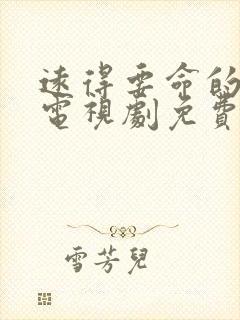 遠得要命的
電視劇免費
雪芳兒